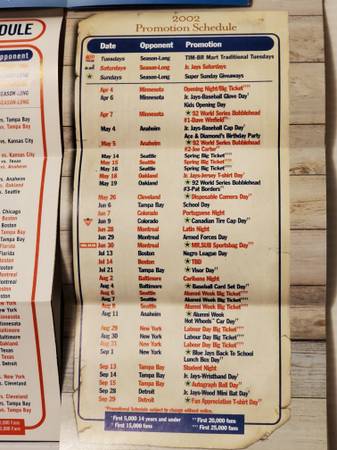 DULE
pponent
ASON-LONG
EASON-LONG
SEASON-LONG
vs. Tampa Bay
vs. Kansas City
vs. Kansas City
vs. Texas
vs. Anaheim
vs. Oakland
s. Seattle
Chicago
Boston
Tampa Bay
Florida
Florida
Boston
Montreal
Montreal
Boston
Boston
2002
Promotion Schedule
Date Opponent Promotion
Tuesdays Season-Long TIM-BR Mart Traditional Tuesdays
Saturdays Season-Long Jr. Jays Saturdays
Sundays Season-Long Super Sunday Giveaways
Apr 4 Minnesota Opening Night/Big Ticket
Apr 6 Minnesota Jr. Jays-Baseball Glove Day
Kids Opening Day
Apr 7 Minnesota '92 World Series Bobblehead
#1-Dave Winfield
May 4 Anaheim Jr. Jays-Baseball Cap Day
Ace & Diamond's Birthday Party
May 5 Anaheim '92 World Series Bobblehead
#2-Joe Carter
May 14 Seattle Spring Big Ticket
May 15 Seattle Spring Big Ticket
May 16 Seattle Spring Big Ticket
May 18 Oakland Jr. Jays-Jersey T-shirt Day
May 19 Oakland '92 World Series Bobblehead
#3-Pat Borders
May 26 Cleveland Disposable Camera Day
Jun 6 Tampa Bay School Day
Jun 7 Colorado Portuguese Night
Jun 9 Colorado Canadian Tire Cap Day
Jun 28 Montreal Latin Night
Jun 29 Montreal Armed Forces Day
Jun 30 Montreal MR.SUB Sportsbag Day
Jul 13 Boston Negro League Day
Jul 14 Boston TBD
Jul 21 Tampa Bay Visor Day
Aug 2 Baltimore Caribana Night
Aug 4 Baltimore Baseball Card Set Day
Aug 6 Seattle Alumni Week Big Ticket
Aug 7 Seattle Alumni Week Big Ticket
Aug 8 Seattle Alumni Week Big Ticket
Aug 11 Anaheim Alumni Week
Hot Wheels Car Day
Aug 29 New York Labour Day Big Ticket
Aug 30 New York Labour Day Big Ticket
Aug 31 New York Labour Day Big Ticket
Sep 1 New York Blue Jays Back To School
Lunch Box Day
Sep 13 Tampa Bay Student Night
Sep 14 Tampa Bay Jr. Jays-Wristband Day
Sep 15 Tampa Bay Autograph Ball Day
Sep 28 Detroit Jr. Jays-Wood Mini Bat Day
Sep 29 Detroit Fan Appreciation T-shirt Day
*Promotional Schedule subject to change without notice.
First 5,000 14 years and under
First 15,000 fans
First 20,000 fans
First 25,000 fans